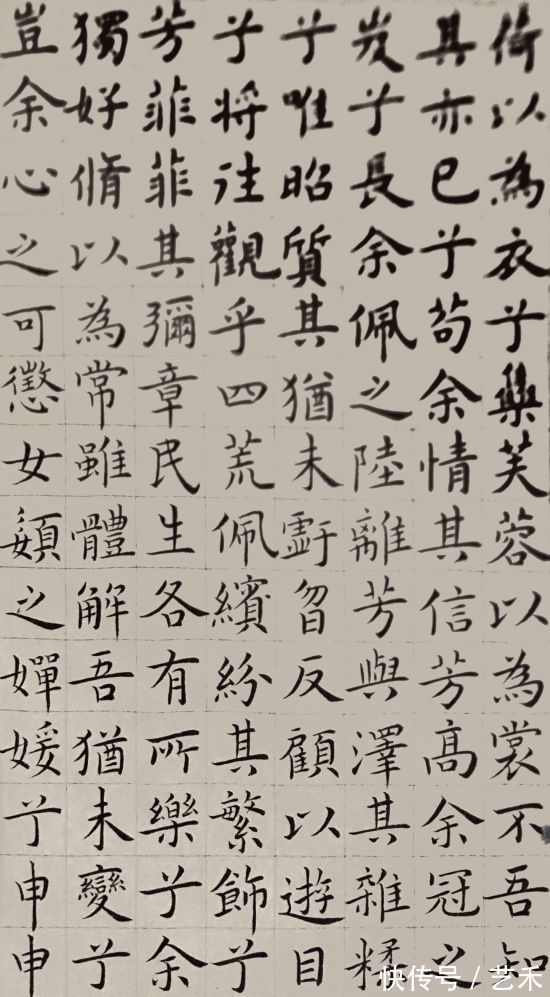 荷以為衣兮集芙蓉以為裳不吾知
其亦已兮苟余情其信芳高余冠之
岌兮長余佩之陸離芳與澤其雜糅
兮唯昭質其猶未虧曶反顧以遊目
兮將往觀乎四荒佩繽紛其繁飾兮
芳菲菲其彌章民生各有所樂兮余
獨好脩以為常雖體解吾猶未變兮
豈余心之可懲女嬃之嬋媛兮申申
快传号 / 艺禾